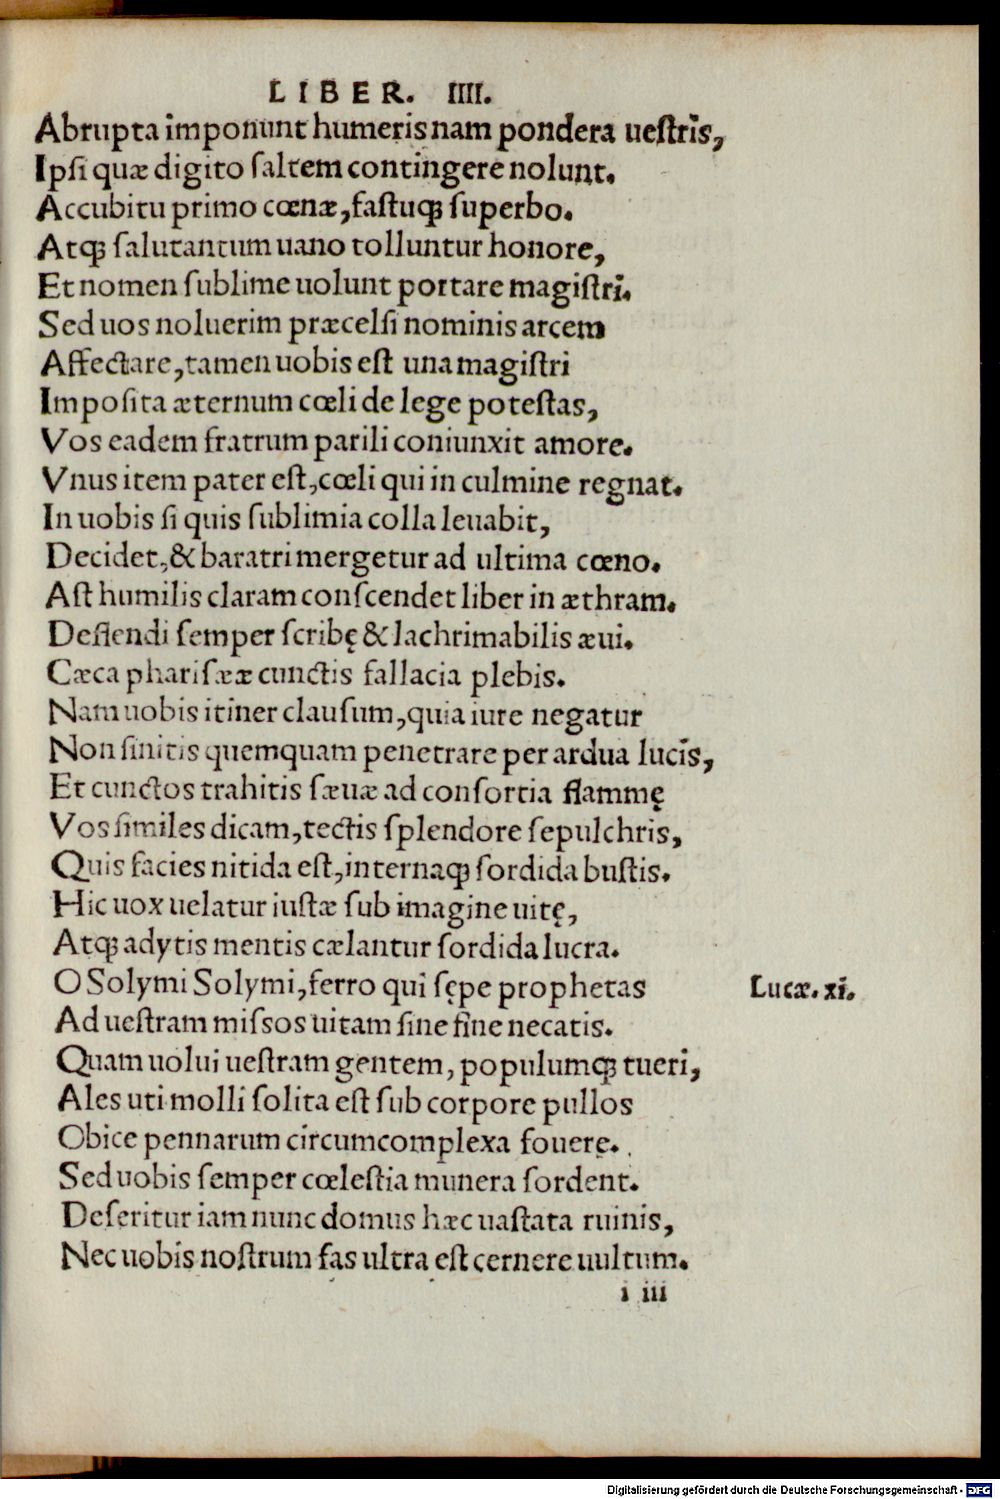 LIBER. IIII.
Abrupta imponunt humeris nam pondera uestris,
Ipsi quæ digito saltem contingere nolunt.
Accubitu primo cœnæ, fastuqꝫ superbo.
Atqꝫ salutantum uano tolluntur honore,
Et nomen sublime uolunt portare magistri.
Sed uos noluerim præcelsi nominis arcem
Affectare, tamen uobis est una magistri
Imposita æternum cœli de lege potestas,
Vos eadem fratrum parili coniunxit amore.
Vnus item pater est, cœli qui in culmine regnat.
In uobis si quis sublimia colla leuabit,
Decidet, & baratri mergetur ad ultima cœno.
Ast humilis claram conscendet liber in æthram.
Deflendi semper scribę & lachrimabilis æui.
Cæca pharisææ cunctis fallacia plebis.
Nam uobis itiner clausum, quia iure negatur
Non sinitis quemquam penetrare per ardua lucis,
Et cunctos trahitis sæuæ ad consortia flammę
Vos similes dicam, tectis splendore sepulchris,
Quis facies nitida est, internaqꝫ sordida bustis.
Hic uox uelatur iustæ sub imagine uitę,
Atqꝫ adytis mentis cælantur sordida lucra.
O Solymi Solymi, ferro qui sępe prophetas
Lucæ. xi.
Ad uestram missos uitam sine fine necatis.
Quam uolui uestram gentem, populumqꝫ tueri,
Ales uti molli solita est sub corpore pullos
Obice pennarum circumcomplexa fouere.
Sed uobis semper cœlestia munera sordent.
Deseritur iam nunc domus hæc uastata ruinis,
Nec uobis nostrum fas ultra est cernere uultum.
i iii
Digitalisierung gefördert durch die Deutsche Forschungsgemeinschaft - DFG